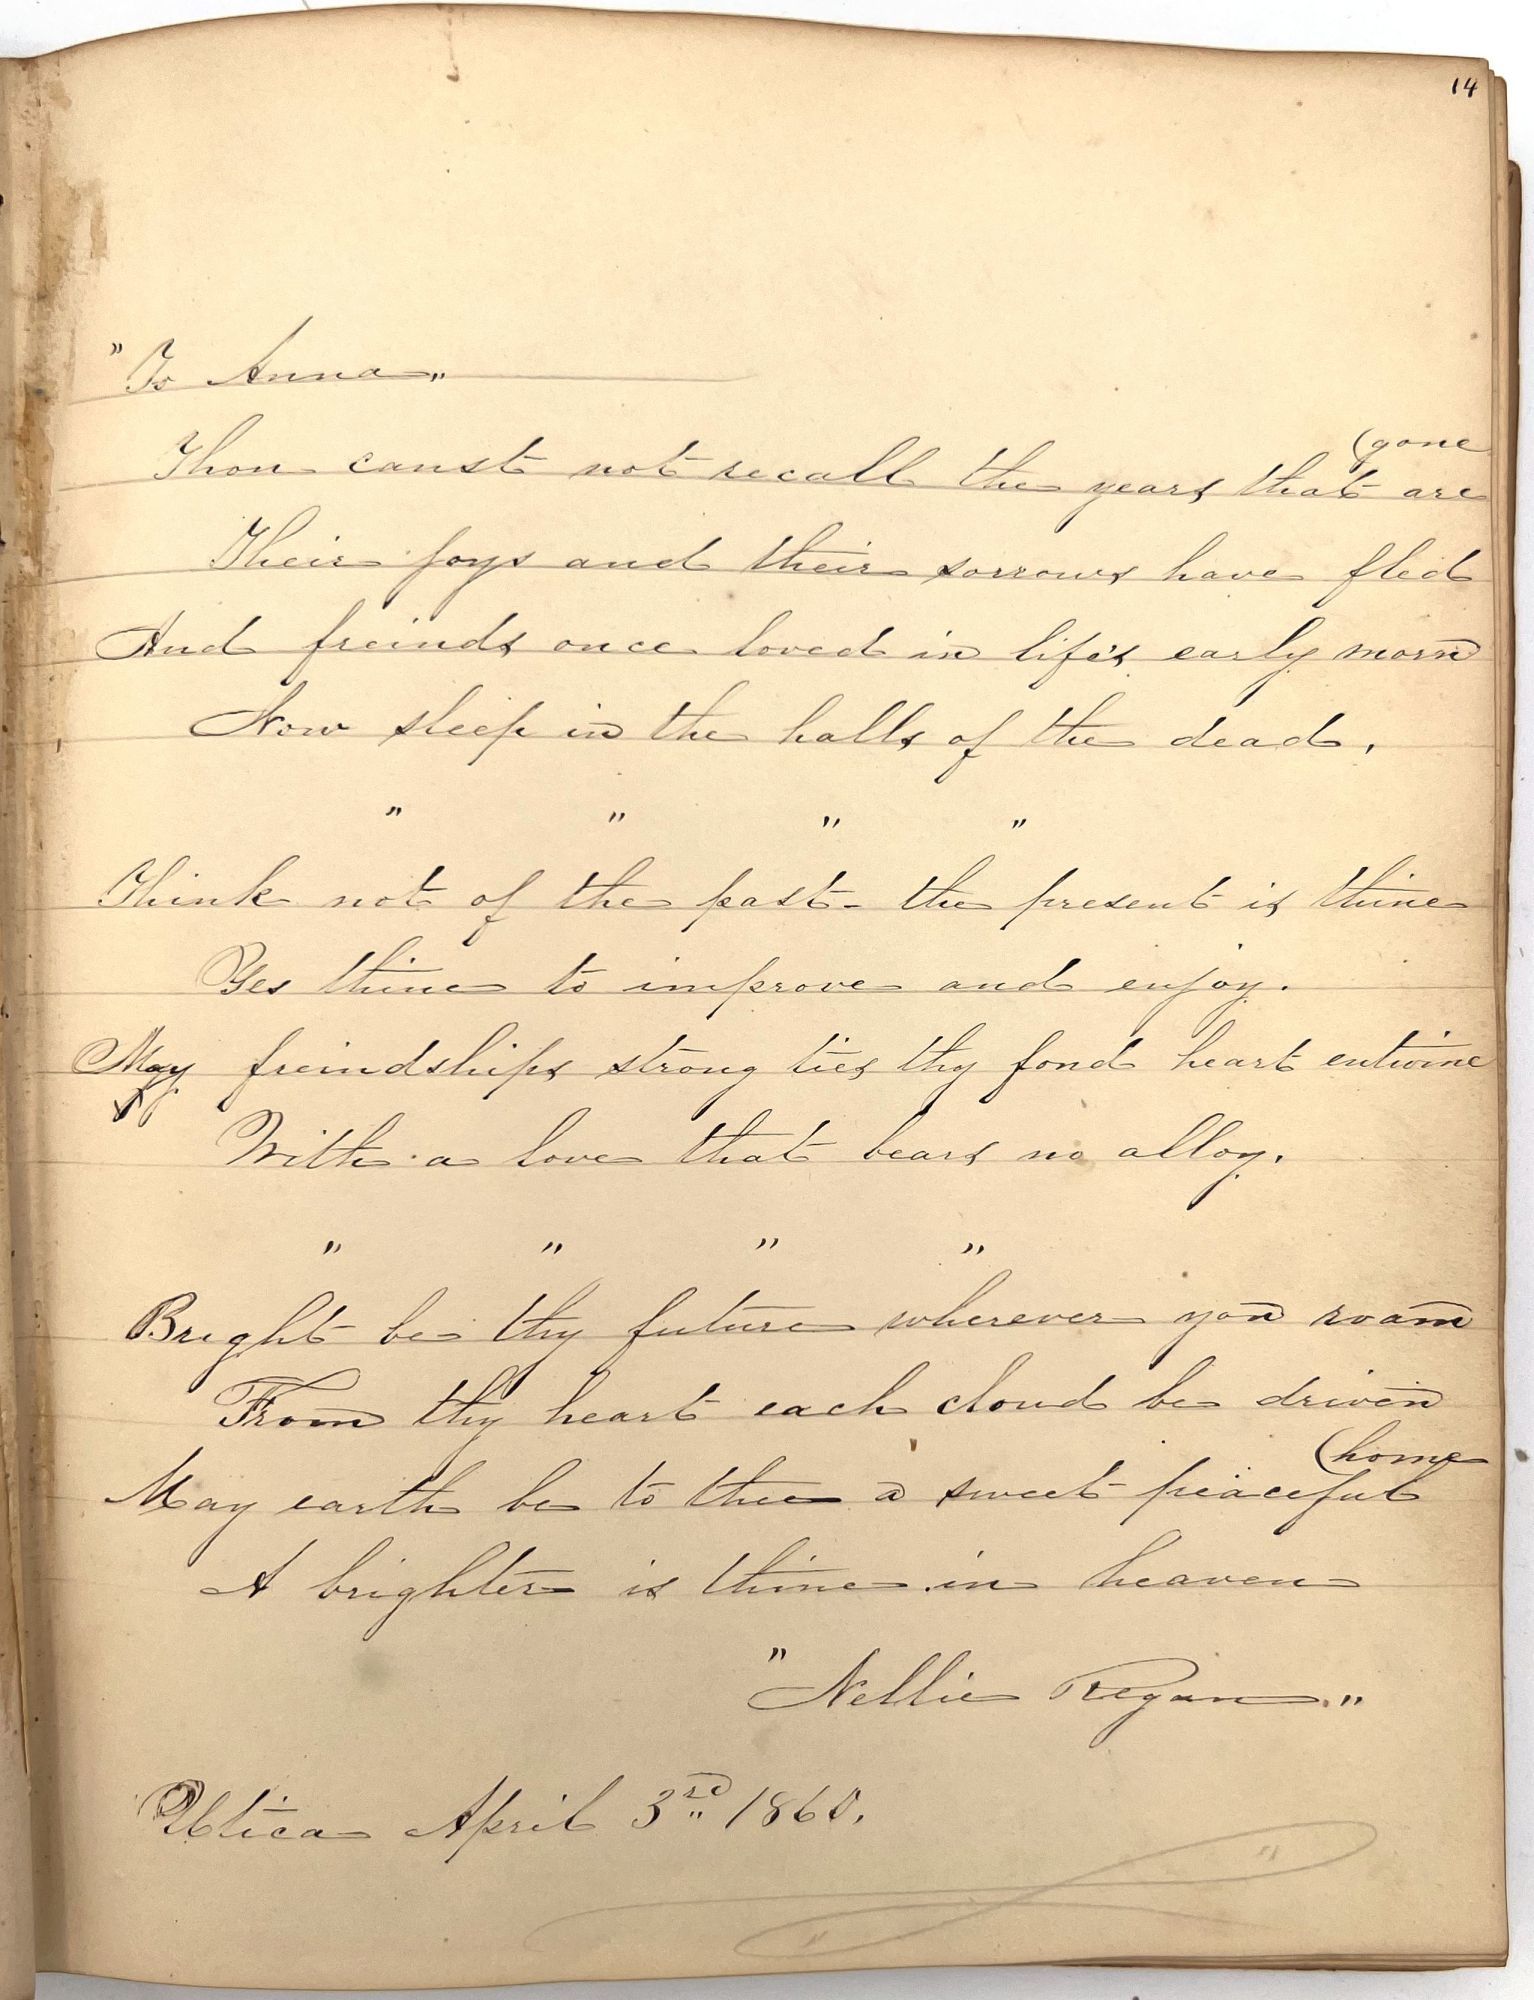 14
"To Anna"
Thou canst not recall the years that are (gone
Their joys and their sorrows have fled
And freinds once loved in life's early morn
Now sleep in the halls of the dead.
" " " "
Think not of the past - the present is thine
Yes thine to improve and enjoy.
May freindships strong ties thy fond heart entwine
With a love that bears no alloy.
" " " "
Bright be thy future wherever you roam
From thy heart each cloud be driven
May earth be to thee a sweet peaceful (home
A brighter is thine in heaven
"Nellie Regan."
Utica April 3rd 1860.